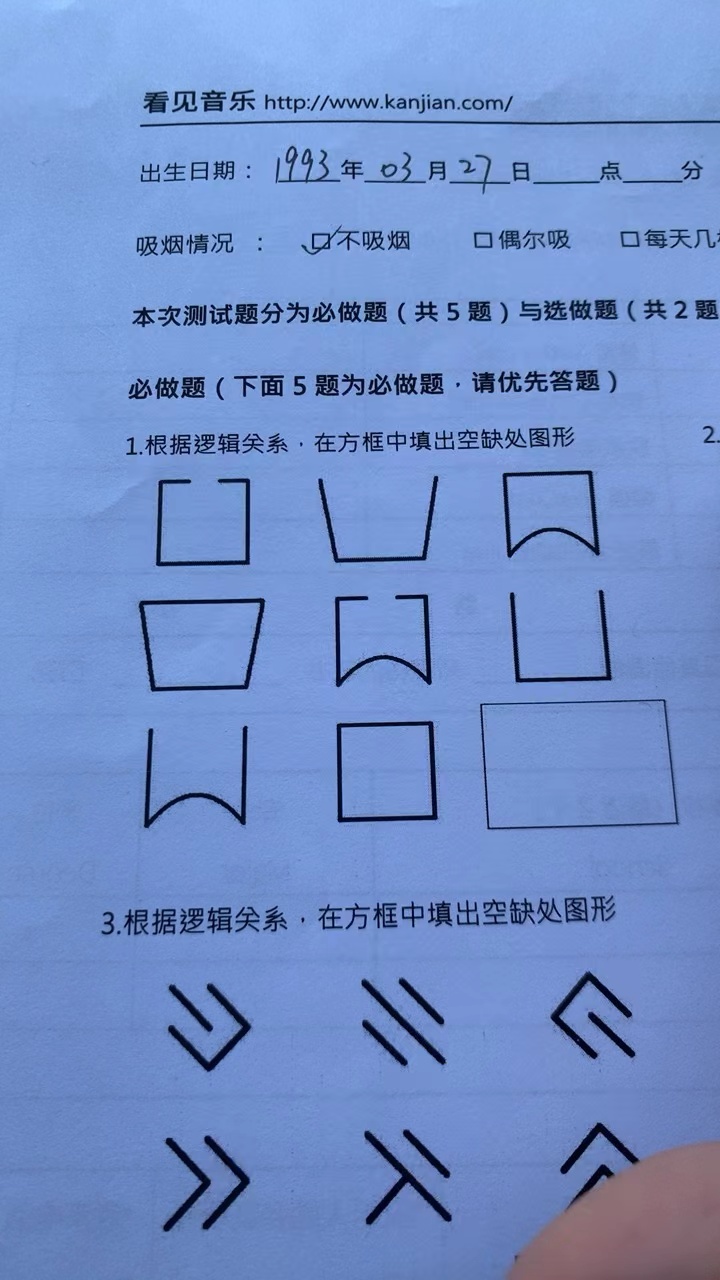 看见音乐 http://www.kanjian.com/
出生日期： 1993年 03 月 27 日____点____分
吸烟情况 ： ☑不吸烟 □偶尔吸 □每天几
本次测试题分为必做题（共 5 题）与选做题（共 2 题
必做题（下面 5 题为必做题，请优先答题）
1.根据逻辑关系，在方框中填出空缺处图形
2.
3.根据逻辑关系，在方框中填出空缺处图形